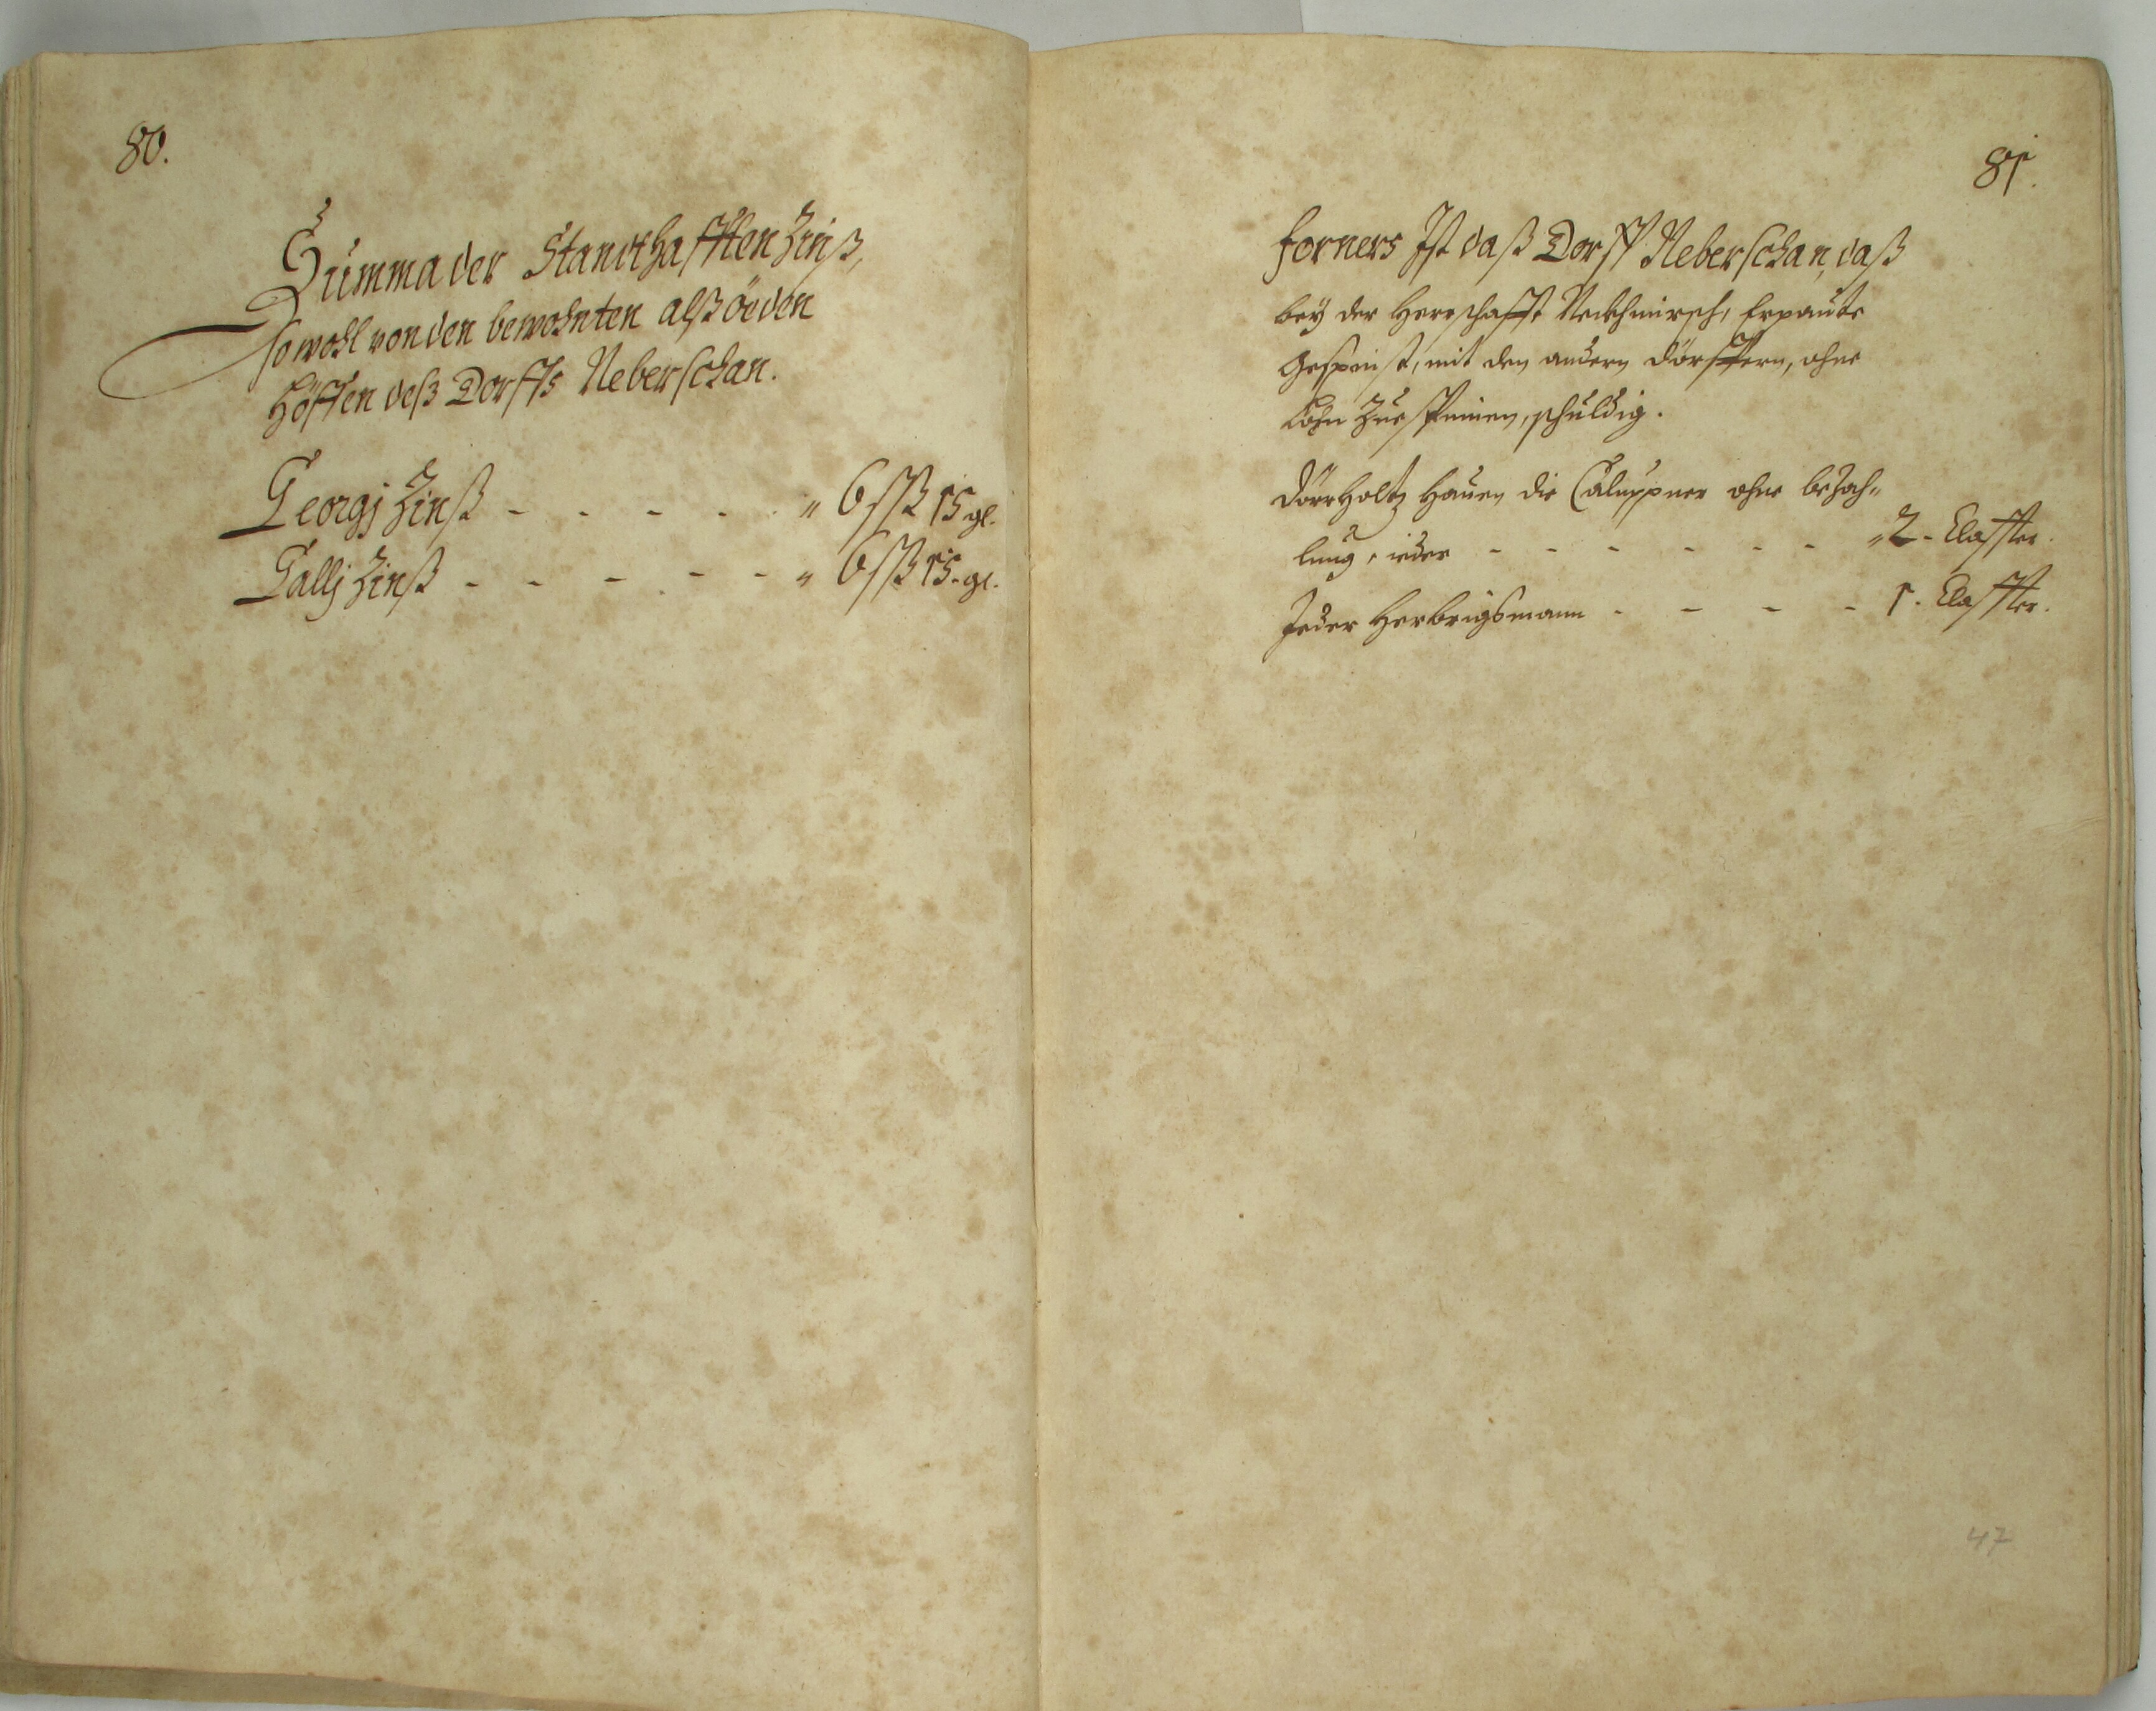 80.
Summa der Standthafften Zinß,
sowohl von den bewohnten alß öeden
Höffen deß Dorffs Neberschan.
Georgj Zinß - - - - - „ 6 ßß 15 gl.
Gallj Zinß - - - - - - „ 6 ßß 15. gl.
81.
ferners Ist daß Dorff Neberschan, daß
bey der Herrschafft erpaute
Gespinst, mit den andern Dörffern, ohne
Lohn zue spinnen, schuldig.
Dörrholtz hauen die Caluppner ohne bezah„
lung, ieder - - - - - - - „ 2 - Claffter.
Jeder Herbrigsmann - - - - 1. Claffter.
47